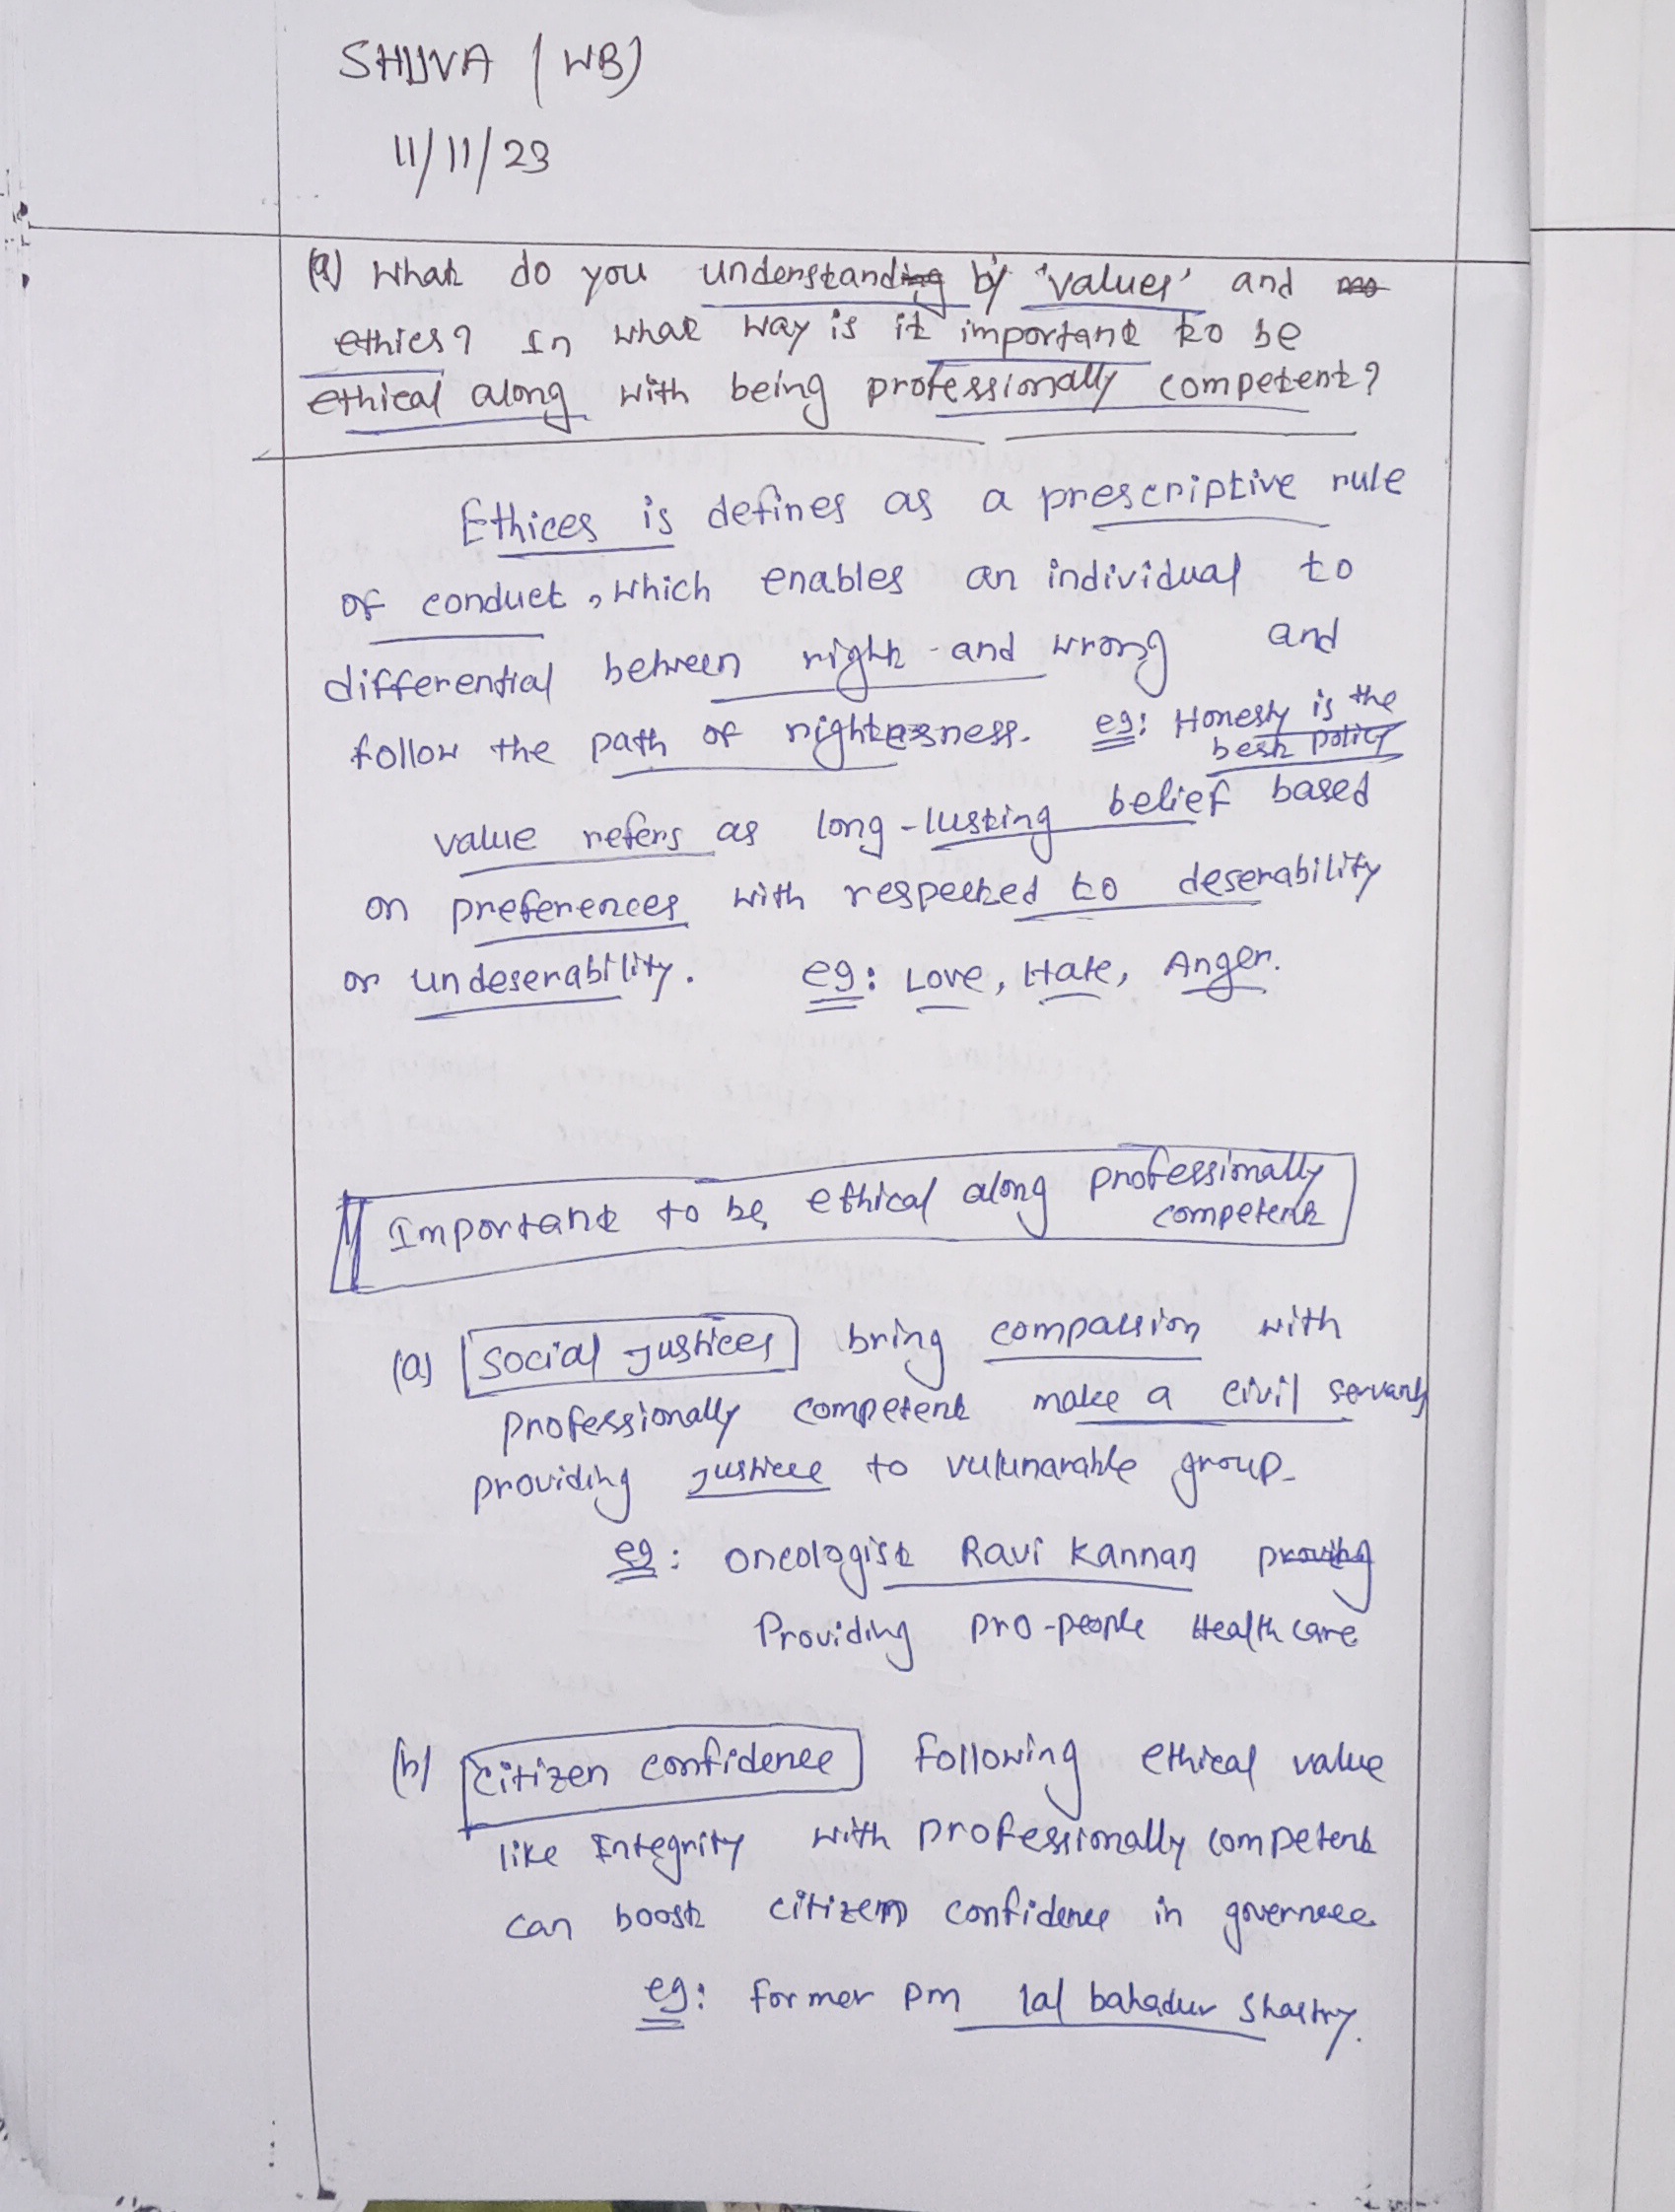 SHIJVA (WB)
11/11/23
(a) What do you understanding by 'values' and
ethics? In what way is it important to be
ethical along with being professionally competent?
Ethices is defines as a prescriptive rule
of conduct, which enables an individual to
differential between right and wrong and
follow the path of righteasness. eg: Honesty is the
best policy
value refers as long-lusting belief based
on preferences with respected to deserability
or undeserability. eg: Love, Hate, Anger.
Important to be ethical along professionally
competent
(a) Social Justices bring compassion with
professionally competent make a civil servant
providing justice to vulunarable group-
eg: oncologist Ravi Kannan proving
Providing pro-people Health care
(b) Citizen confidence Following ethical value
like Integrity with professionally competent
can boost citizen confidence in
eg: former pm lal bahadur Shastry.